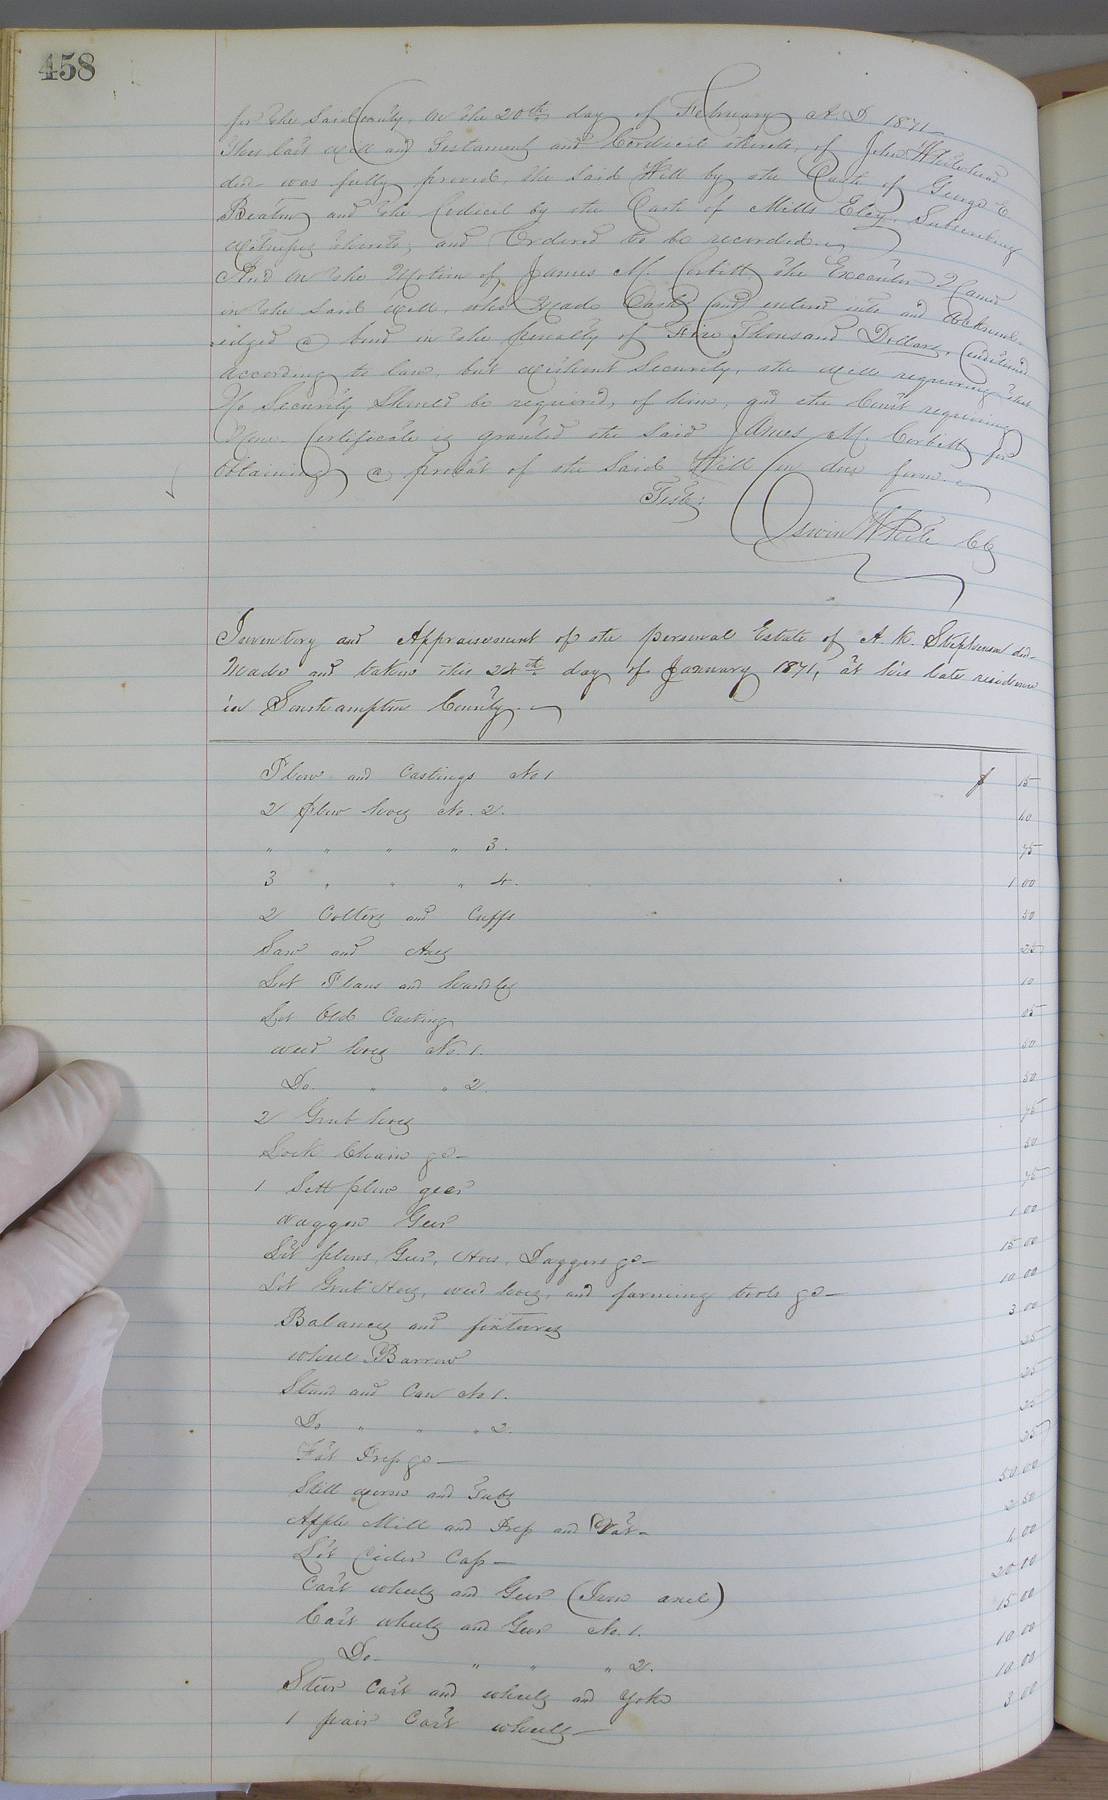 458
for the said County, on the 20th day of February A.D. 1871
This last will and Testament and Cordicil thereto, of John Whitehead
decd was fully proved, the said Will by the Oath of George E.
Beaton and the Codicil by the Oath of Mills Eley, Subscribing
Witnesses thereto, and Ordered to be recorded.
And on the Motion of James M. Corbitt the Executor Named
in the said will, who made Oath and entered into and Acknowl-
edged a bond in the penalty of Five Thousand Dollars, Conditioned
According to law, but without Security, the will requiring that
No Security Should be required, of him, and the Court requiring
None. Certificate is granted the said James M. Corbitt for
Obtaining a probat of the Said Will in due form.
Teste:
Oswin White CC
Inventory and Appraisement of the personal Estate of A. K. Stephenson decd
Made and taken this 24th day of January 1871, at his late residence
in Southampton County.
Plow and Castings No 1 $ 15
2 plow hoes No. 2. 40
" " " " 3. 75
3 " " " 4. 1 00
2 Colters and Cuffs 50
Saw and Axes 25
Lot Plans and handles 10
Lot Old Casting 05
weed hoes No 1. 50
Do " " 2. 50
2 Grub hoes 75
Lock Chain &c 50
1 Sett plow geer 75
waggon Geer 1 00
Lot plows, Geer, Hoes, Daggers &c 15 00
Lot Grub Hoes, weed hoes, and farming tools &c 10 00
Balances and fixtures 3 00
wheel Barrow 25
Stand and Can No 1. 25
Do " " " 2. 25
Fat &c 25
Still worm and Tubs 50 00
Apple Mill and and Vat 2 50
Lot Cider Casp 4 00
Cart wheels and Geer (Iron axel) 20 00
Cart wheels and Geer No. 1. 15 00
Do " " " 2. 10 00
Steer Cart and wheels and Yoke 10 00
1 pair Cart wheels 3 00